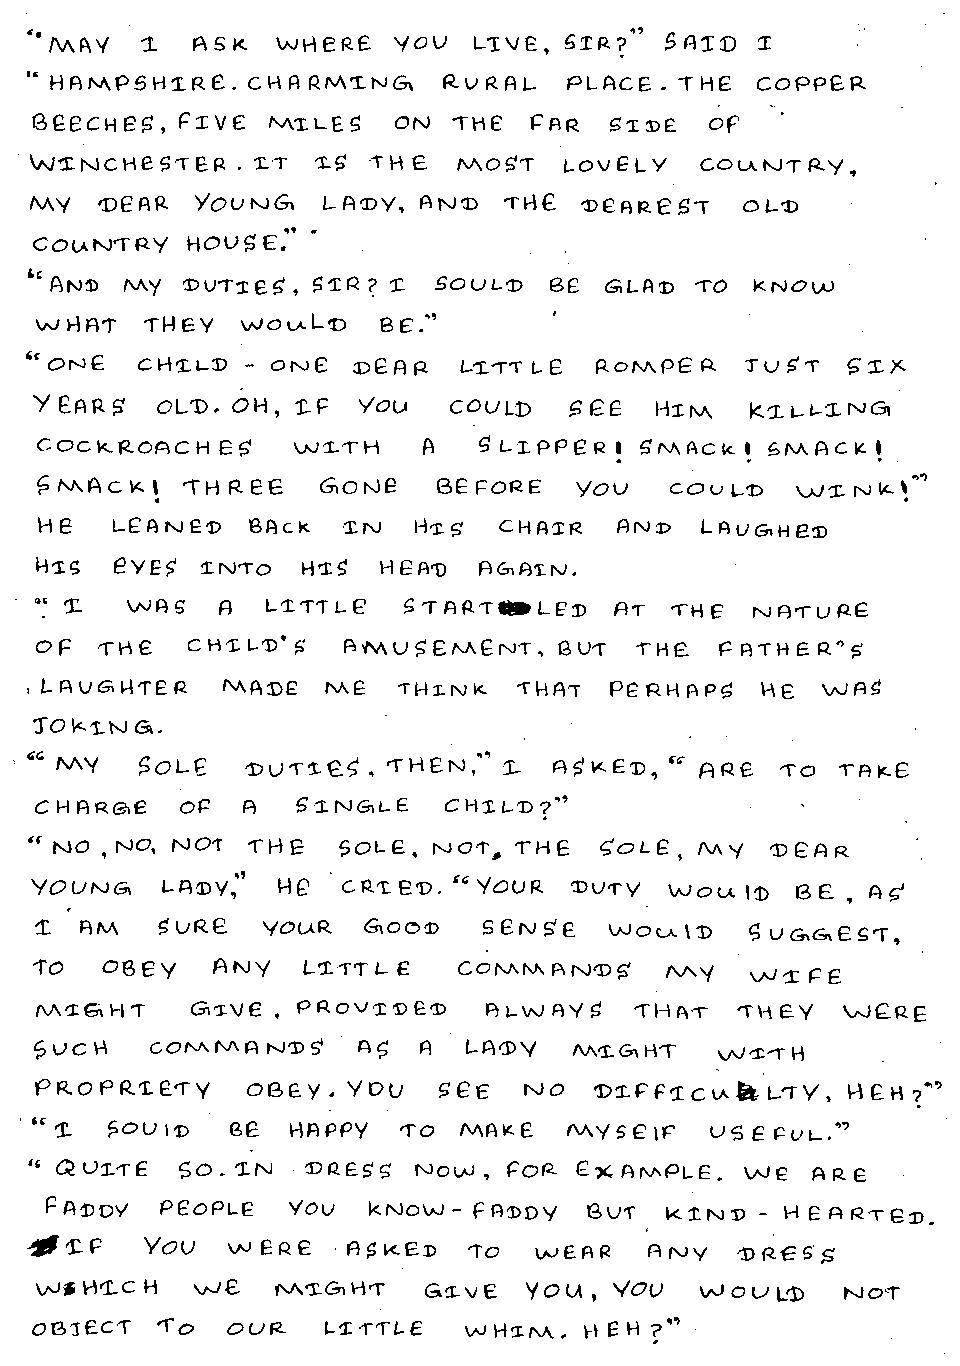 "MAY I ASK WHERE YOU LIVE, SIR?" SAID I
"HAMPSHIRE. CHARMING RURAL PLACE. THE COPPER
BEECHES, FIVE MILES ON THE FAR SIDE OF
WINCHESTER. IT IS THE MOST LOVELY COUNTRY,
MY DEAR YOUNG LADY, AND THE DEAREST OLD
COUNTRY HOUSE."
"AND MY DUTIES, SIR? I SOULD BE GLAD TO KNOW
WHAT THEY WOULD BE."
"ONE CHILD - ONE DEAR LITTLE ROMPER JUST SIX
YEARS OLD. OH, IF YOU COULD SEE HIM KILLING
COCKROACHES WITH A SLIPPER! SMACK! SMACK!
SMACK! THREE GONE BEFORE YOU COULD WINK!"
HE LEANED BACK IN HIS CHAIR AND LAUGHED
HIS EYES INTO HIS HEAD AGAIN.
"I WAS A LITTLE STARTLED AT THE NATURE
OF THE CHILD'S AMUSEMENT, BUT THE FATHER'S
LAUGHTER MADE ME THINK THAT PERHAPS HE WAS
JOKING.
"MY SOLE DUTIES, THEN," I ASKED, "ARE TO TAKE
CHARGE OF A SINGLE CHILD?"
"NO, NO, NOT THE SOLE, NOT, THE SOLE, MY DEAR
YOUNG LADY," HE CRIED. "YOUR DUTY WOULD BE, AS
I AM SURE YOUR GOOD SENSE WOULD SUGGEST,
TO OBEY ANY LITTLE COMMANDS MY WIFE
MIGHT GIVE, PROVIDED ALWAYS THAT THEY WERE
SUCH COMMANDS AS A LADY MIGHT WITH
PROPRIETY OBEY. YOU SEE NO DIFFICULTY, HEH?"
"I SOULD BE HAPPY TO MAKE MYSELF USEFUL."
"QUITE SO. IN DRESS NOW, FOR EXAMPLE. WE ARE
FADDY PEOPLE YOU KNOW - FADDY BUT KIND - HEARTED.
IF YOU WERE ASKED TO WEAR ANY DRESS
WHICH WE MIGHT GIVE YOU, YOU WOULD NOT
OBJECT TO OUR LITTLE WHIM. HEH?"